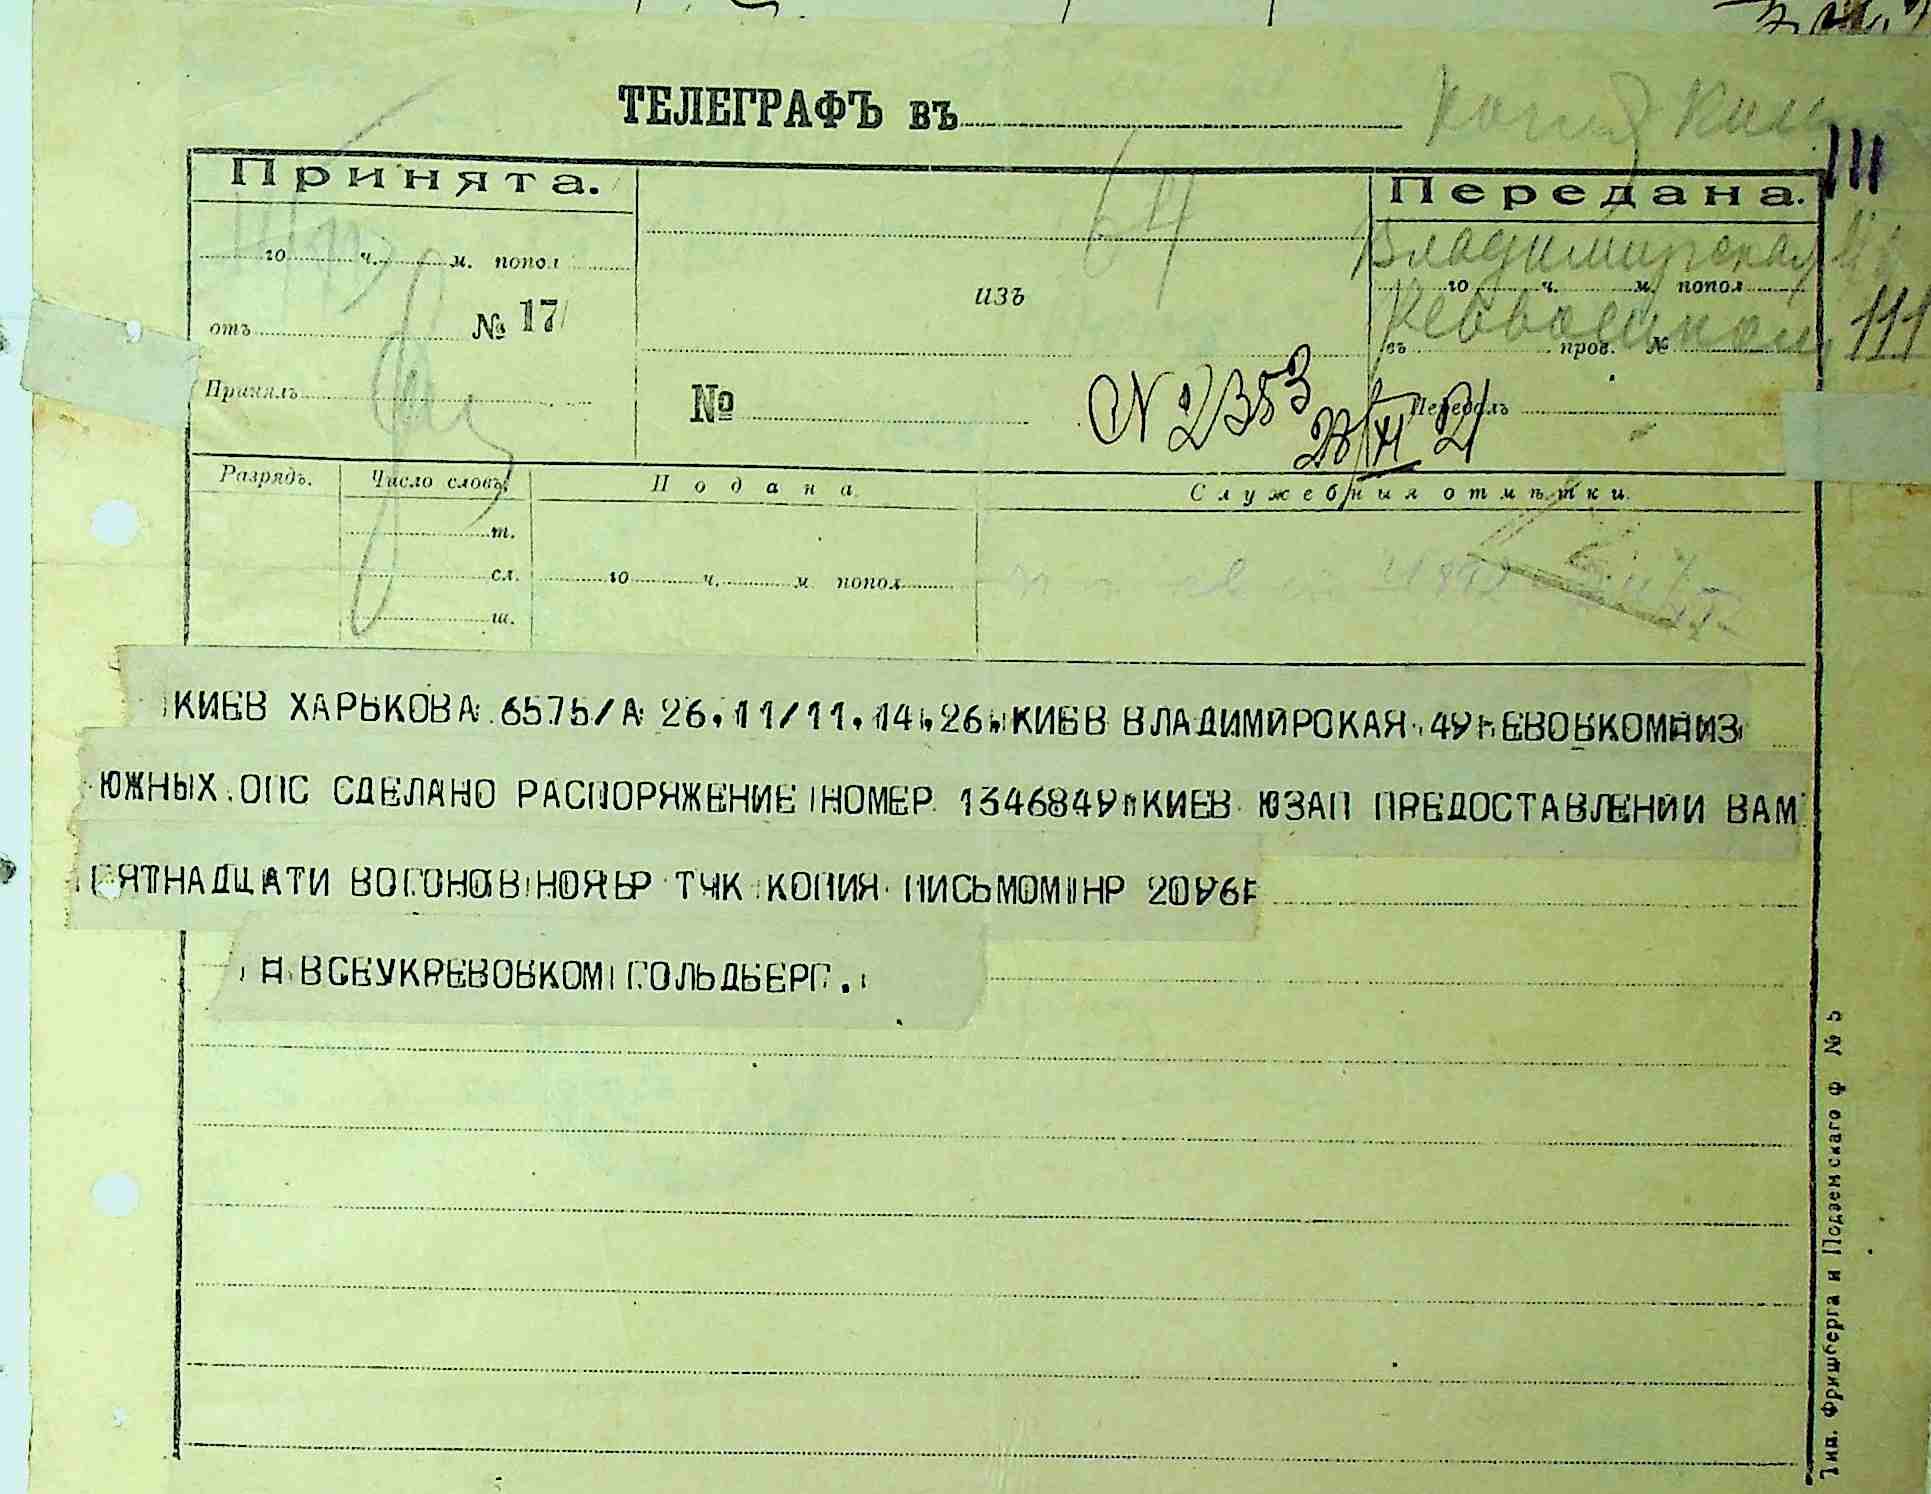 ТЕЛЕГРАФЪ въ
Принята.
Передана.
Владимирская
го ч. м. попол
изъ
го ч. м. попол
отъ № 17
въ пров. №
111
Принялъ
№
N 2353
Передалъ
23/XI 21
Разрядъ.
Число словъ.
Подана.
Служебныя отмѣтки.
т.
сл.
го ч. м попол
ш.
КИЕВ ХАРЬКОВА 6575/А 26.11/11.14.26 КИЕВ ВЛАДИМИРСКАЯ 49 ЕВОБКОМ ИЗ
ЮЖНЫХ ОПС СДЕЛАНО РАСПОРЯЖЕНИЕ НОМЕР 1346849 КИЕВ ЮЗАП ПРЕДОСТАВЛЕНИИ ВАМ
ПЯТНАДЦАТИ ВОГОНОВ НОЯБР ТЧК КОПИЯ ПИСЬМОМ НР 20966
ВСЕУКРЕВОБКОМ ГОЛЬДБЕРГ.
Тип. Фришберга и Подзенскаго ф № 5